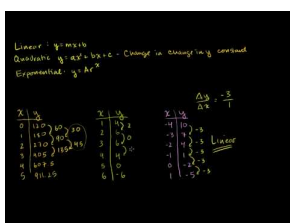 Linear: y = mx+b
Quadratic y = ax² + bx + c - Change in change in y constant
Exponential: y = Ar^x
Δy/Δx = -3/1
x | y
0 | 120
1 | 180
2 | 270
3 | 405
4 | 607.5
5 | 911.25
60
90
30
45
x | y
4
2
6
0
3 | 6
4 | 4
5 | 0
6 | -6
x | y
-4 | 10
-3 | 7
-2 | 4
-1 | 1
0 | -2
1 | -5
-3
-3
-3
-3
Linear